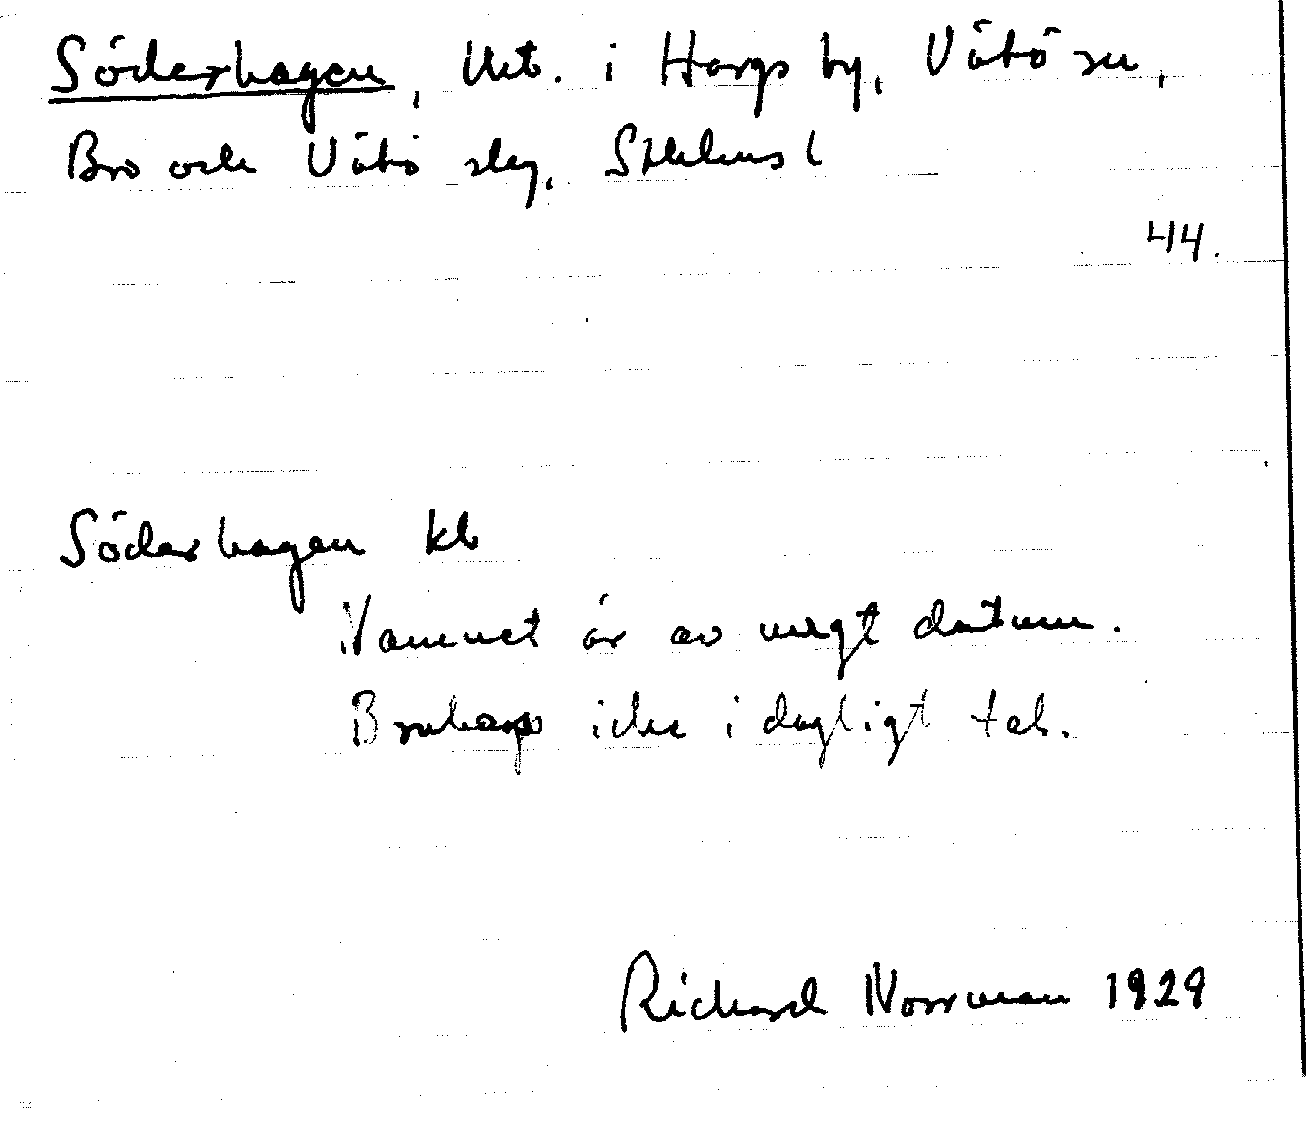 Söderhagen, Utt. i Hargs by, Vätö sn,
Bro och Vätö slg, Sthlms l
44.
Söderhagen kb
Namnet är av ungt datum.
Brukas icke i dagligt tal.
Richard Norrman 1929